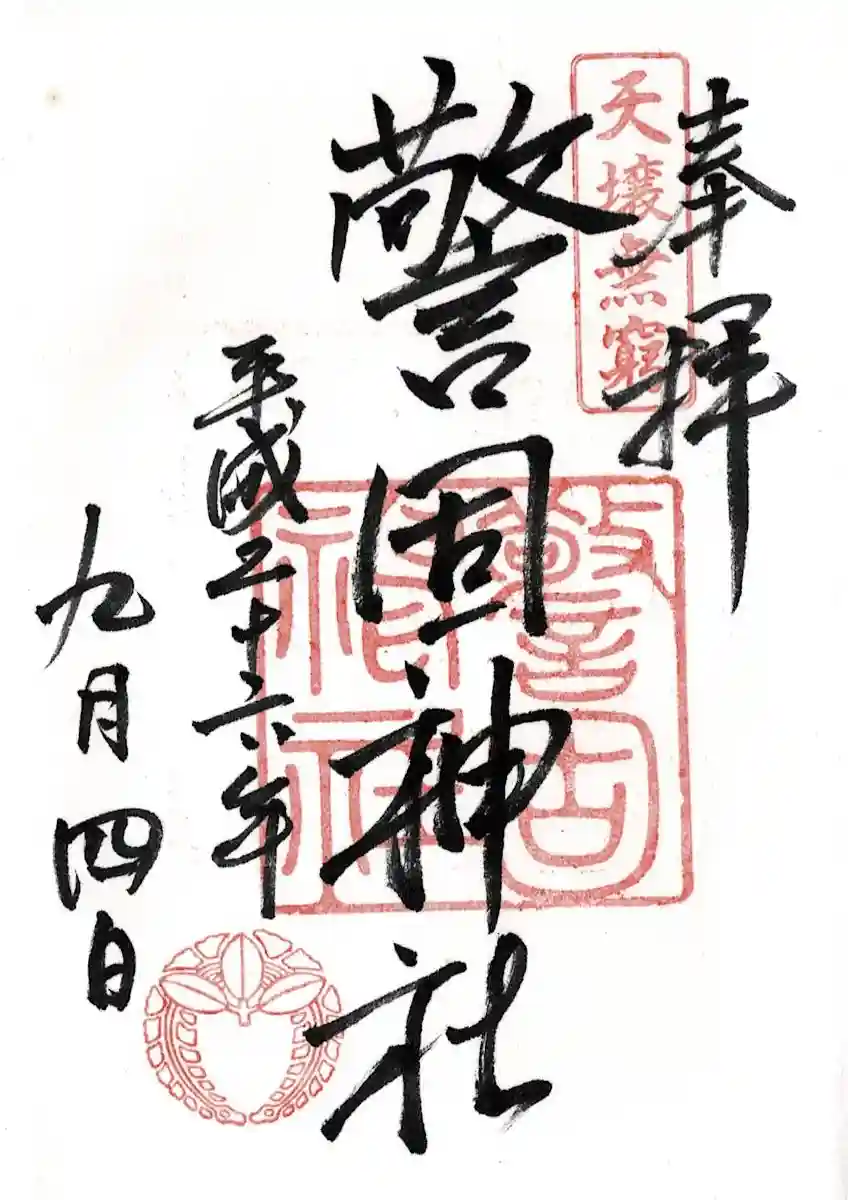 奉拝
天壤無窮
警固神社
警固
神社
平成二十六年
九月四日